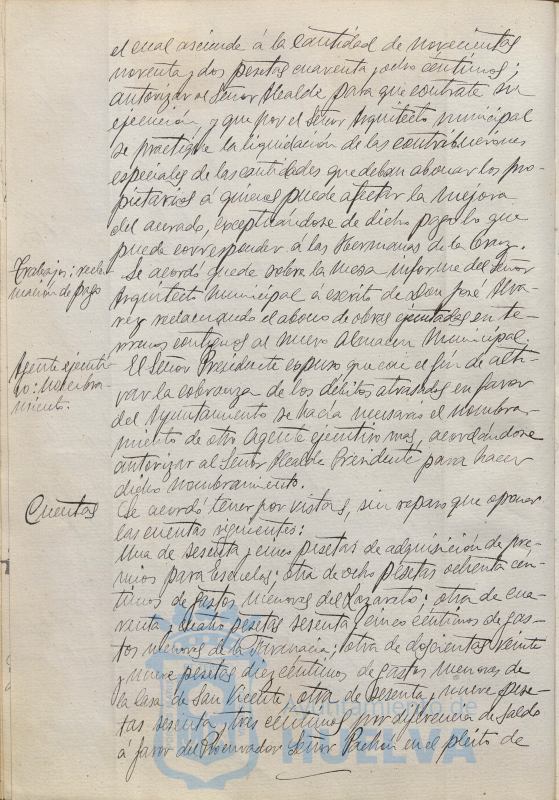 el cual asciende á la cantidad de novecientas
noventa y dos pesetas cuarenta y ocho centimos;
autorizar al Señor Alcalde para que contrate su
ejecución y que por el Señor Arquitecto municipal
se practique la liquidación de las contribuciones
especiales de las cantidades que deban abonar los pro-
pietarios á quienes puede afectar la mejora
del acerado, exceptuándose de dicho pago lo que
pueda corresponder á las Hermanas de la Cruz.
Trabajos: recla-
mación de pago
Se acordó quede sobre la mesa informe del Señor
Arquitecto Municipal á escrito de Don José Alva-
rez reclamando el abono de obras ejecutadas en te-
rrenos contiguos al nuevo Almacen Municipal.
Agente ejecuti-
vo: nombra-
miento.
El Señor Presidente expuso que con el fin de acti-
var la cobranza de los débitos atrasados en favor
del Ayuntamiento se hacía necesario el nombra-
miento de otro Agente ejecutivo mas, acordándose
autorizar al Señor Alcalde Presidente para hacer
dicho nombramiento.
Cuentas
Se acordó tener por vistas, sin reparo que oponer
las cuentas siguientes:
Una de sesenta y cinco pesetas de adquisición de pre-
mios para Escuelas; otra de ocho pesetas ochenta cén-
timos de gastos menores del Lazareto; otra de cua-
renta y cuatro pesetas sesenta y cinco céntimos de gas-
tos menores de la Farmacia; otra de doscientas veinte
y nueve pesetas diez céntimos de gastos menores de
la Casa de San Vicente, otra de sesenta y nueve pese-
tas sesenta y tres céntimos por diferencia de saldo
á favor del Procurador Señor Pachón en el pleito de
Ayuntamiento de
HUELVA